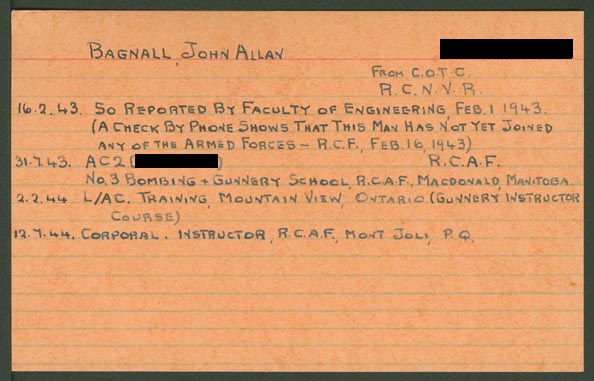 BAGNALL, JOHN ALLAN
FROM C.O.T.C.
R.C.N.V.R.
16.2.43. SO REPORTED BY FACULTY OF ENGINEERING, FEB. 1 1943.
(A CHECK BY PHONE SHOWS THAT THIS MAN HAS NOT YET JOINED
ANY OF THE ARMED FORCES - R.C.F., FEB. 16, 1943)
31.7.43. AC2 ( ) R.C.A.F.
No. 3 BOMBING + GUNNERY SCHOOL, R.C.A.F., MACDONALD, MANITOBA.
2.2.44 L/AC. TRAINING, MOUNTAIN VIEW, ONTARIO (GUNNERY INSTRUCTOR
COURSE)
12.7.44. CORPORAL. INSTRUCTOR, R.C.A.F., MONT JOLI, P.Q.